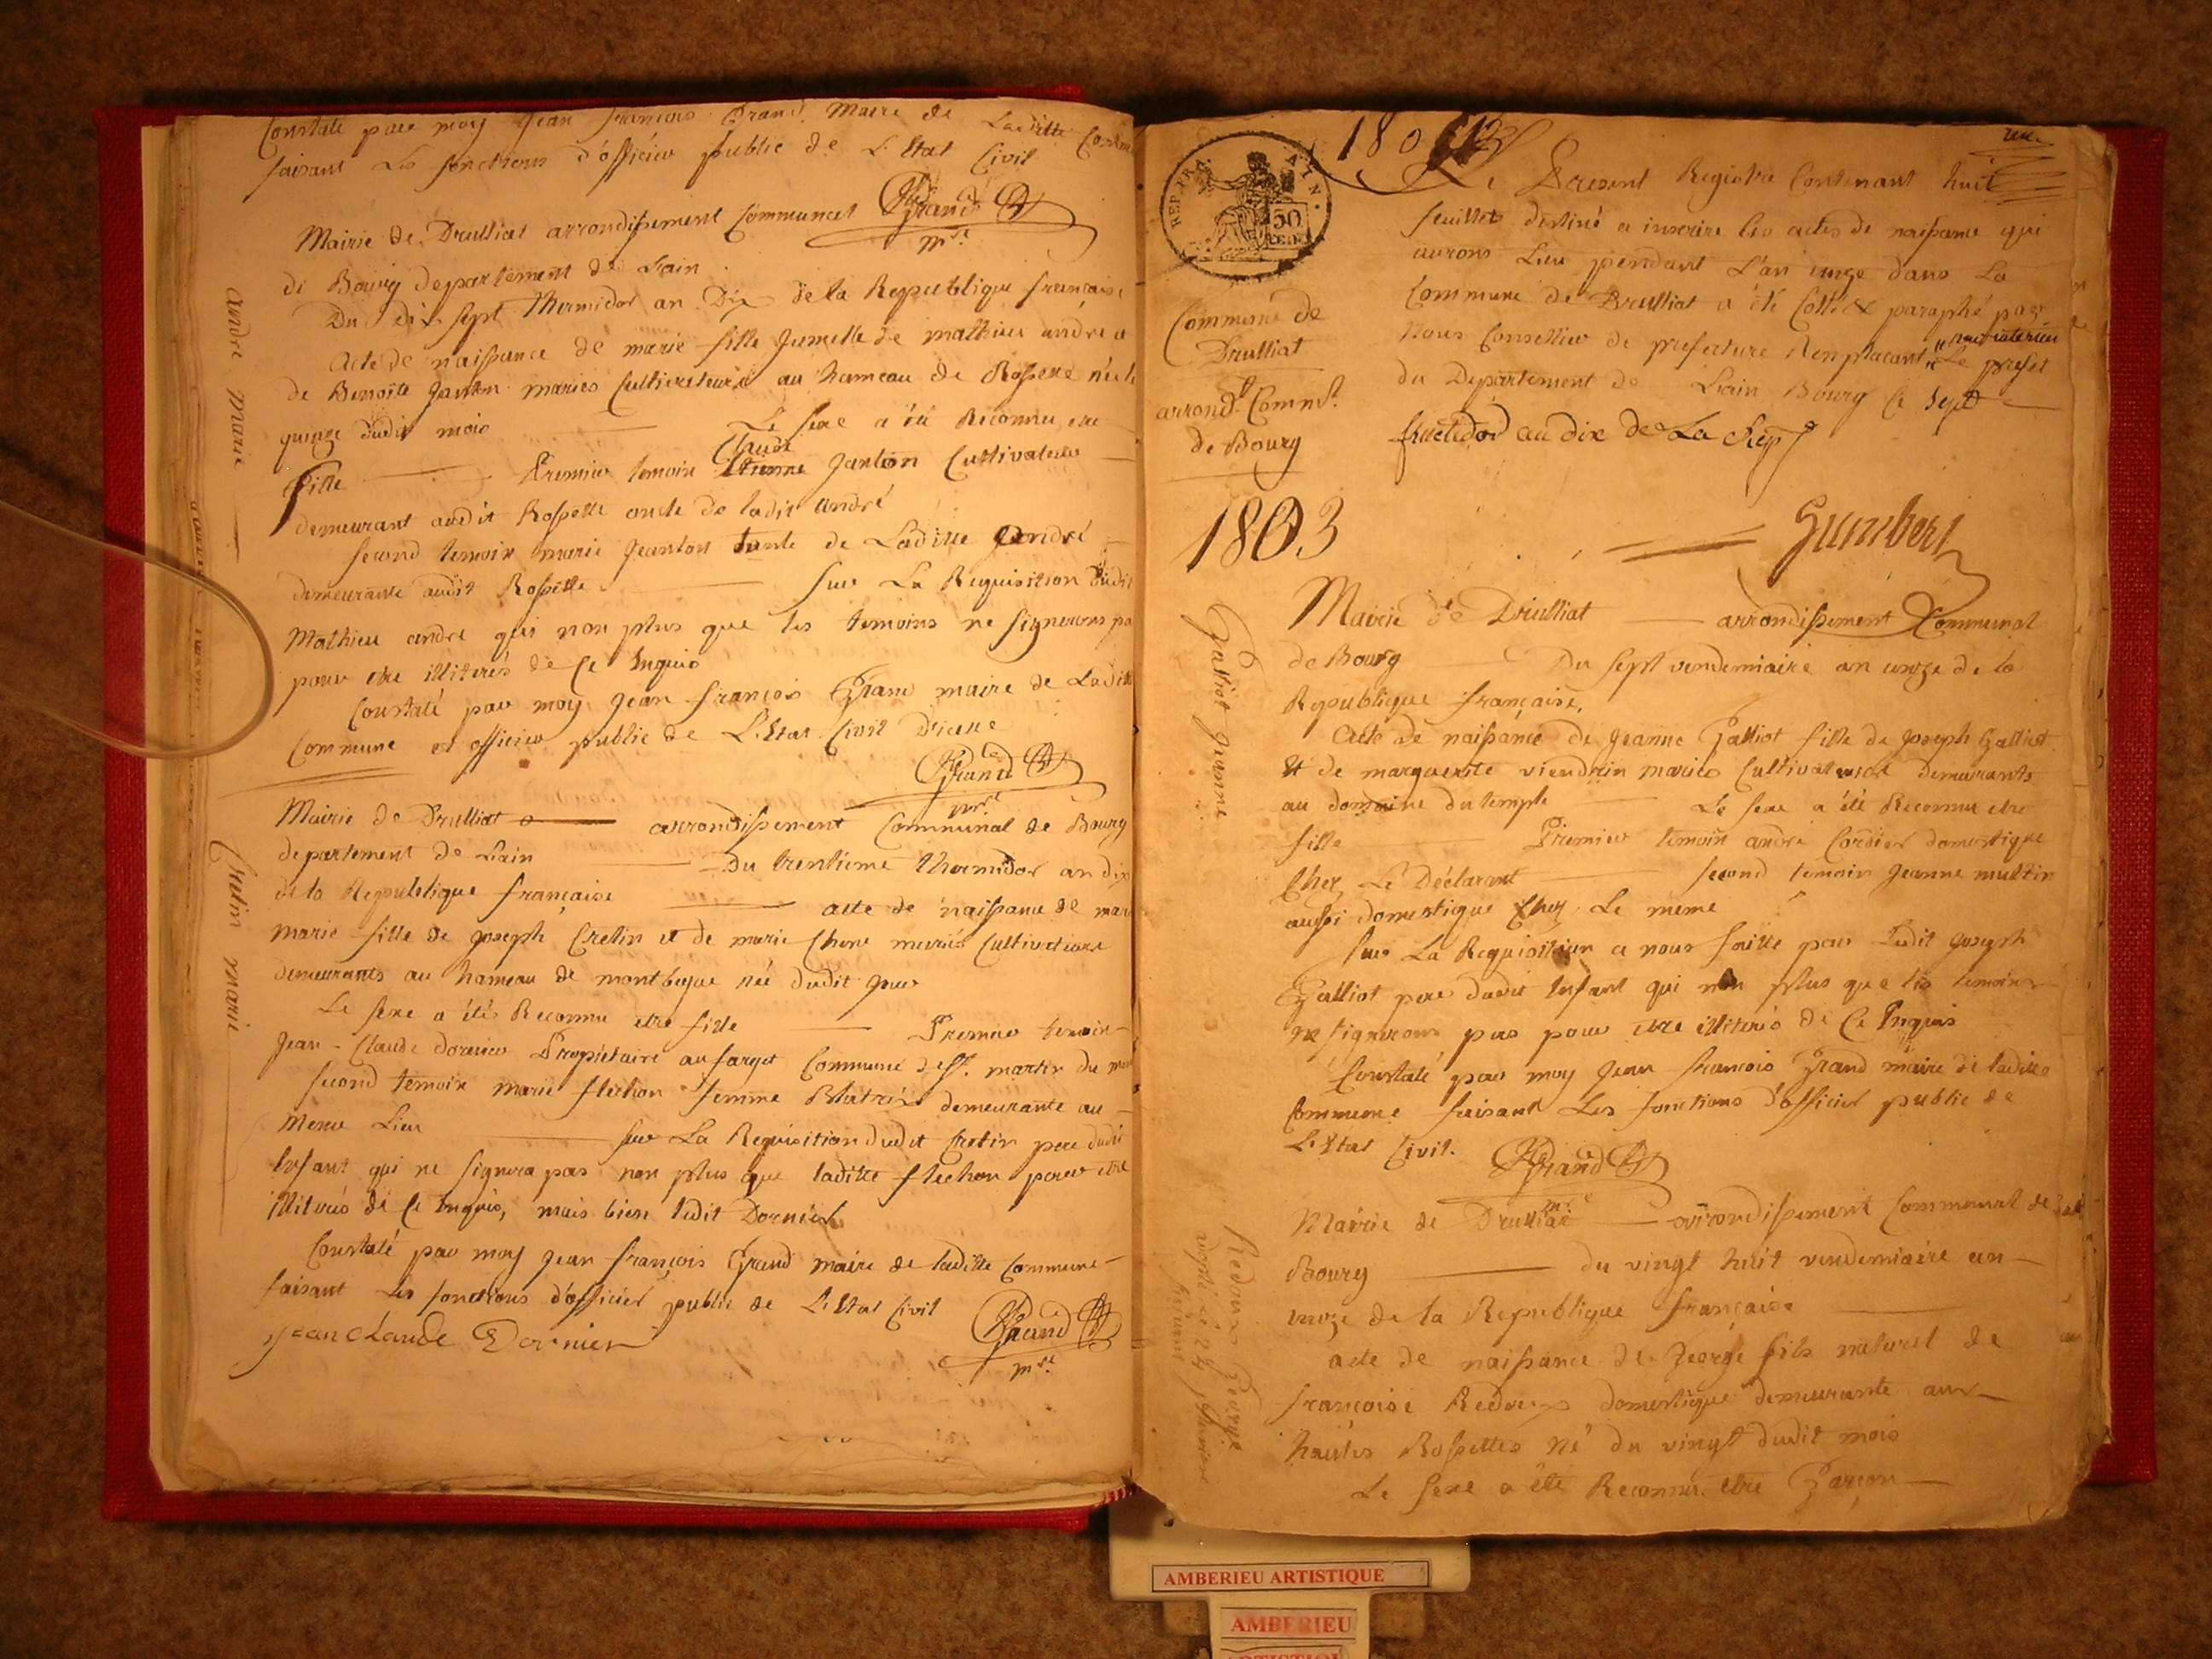 Constaté par moy Jean françois Grand Maire de Laditte Comm
faisant Les fonctions d'officier public de L'Etat Civil
Grand
mre
Mairie de Drulliat arrondissement Communal
de Bourg departement de Lain
Du dix Sept Thermidor an Dix de la Republique francaise
Acte de naissance de marie fille Jumelle de mathieu andré
de Benoite Janton mariés Cultivateurs au hameau de Rossette née le
quinze dudit mois Le sexe a été Reconnu etre
Claude
fille Premier temoin Etienne Janton Cultivateur
demeurant audit Rossette oncle de ladit André
Second temoin marie Jeanton tante de Laditte andré
demeurante audit Rossette Sur La Requisition dudit
Mathieu andré qui non plus que les temoins ne Signerons pa
pour etre illiterés de Ce Inquis
Constaté par moy Jean françois Grand maire de Laditte
Commune et officier public de L'Etat Civil D'icelle
Grand
mre
andré marie
Mairie de Drulliat arrondissement Communal de Bourg
departement de Lain Du trentieme thermidor an dix
de la Republique française acte de naissance de
marie fille de Joseph Cretin et de marie Chene mariés Cultivateurs
demeurants au hameau de montbegue née dudit jour
Le sexe a été Reconnu etre fille Premier temoin
Jean-Claude dornier Propriétaire au farget Commune de St. martin du mon
Second temoin marie flechon femme demeurante au
Meme Lieu Sur La Requisition dudit Cretin pere dudit
Infant qui ne Signera pas non plus que laditte flechon pour etre
illiterés de Ce Inquis, mais bien ledit Dornier
Constaté par moy Jean françois Grand maire de laditte Commune
faisant Les fonctions d'officier public de L'Etat Civil
Jean claude Dornier
Grand
mre
Cretin marie
180
une
REP. FRA.
AIN.
50
CEN
Le Present Registre Contenant huit
feuillets destiné a inscrire les actes de naissance qui
aurons Lieu pendant L'an onze dans La
Commune de Drulliat a été Cotté & paraphé par
Nous Conseiller de prefecture Remplacant Le prefet
du Departement de Lain Bourg Ce Sept
fructidor an dix de La Rep
Commune de
Drulliat
arrondt. Commal.
de Bourg
1803
Mairie de Drulliat arrondissement Communal
de Bourg Du Sept vendemiaire an onze de la
Republique française,
Acte de naissance de Jeanne Galliot fille de Joseph Galliot
et de marguerite viendrin mariés Cultivateurs demeurants
au domaine du temple Le sexe a été Reconnu etre
fille Premier temoin andré Cordier domestique
Chez Le Déclarant second temoin Jeanne multin
aussi domestique Chez Le meme
Sur La Requisition a nous faitte par Ledit Joseph
Galliot pere dudit Infant qui non plus que les temoins
ne Signerons pas pour etre illiterés de Ce Inquis
Constaté par moy Jean françois Grand maire de laditte
Commune faisant Les fonctions d'officier public de
L'Etat Civil.
Grand
mre
Galliot Jeanne
Mairie de Drulliat arrondissement Communal de
Bourg du vingt huit vendemiaire an
onze de la Republique française
acte de naissance de George fils naturel de
françoise domestique demeurante aux
hautes Rossettes Né du vingt dudit mois
Le Sexe a été Reconnu etre Garçon
George
AMBERIEU ARTISTIQUE
AMBERIEU